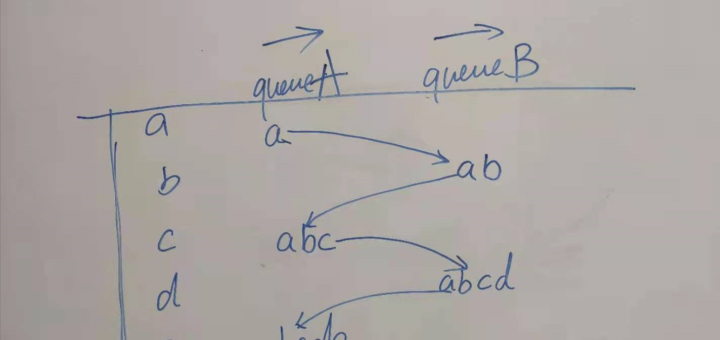 queueA queueB
a a
b ab
c abc
d abcd